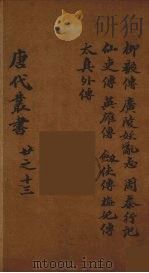 柳毅傳 廣陵妖亂志 周秦行記
仙吏傳 英雄傳 劍俠傳 梅妃傳
太真外傳
唐代叢書 廿之十三